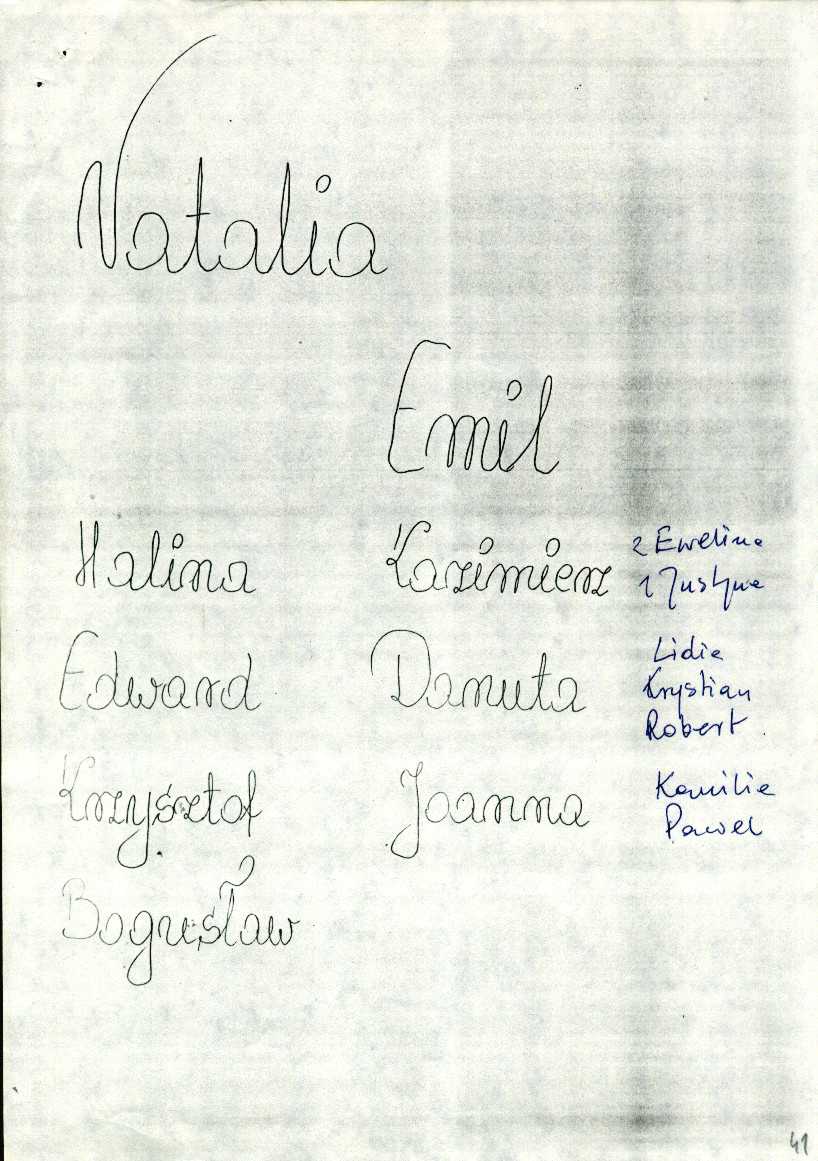 Natalia
Emil
Halina Kazimierz 2 Ewelina
1 Justyna
Edward Danuta Lidia
Krystian
Robert
Krzysztof Joanna Kamilia
Paweł
Bogusław
41